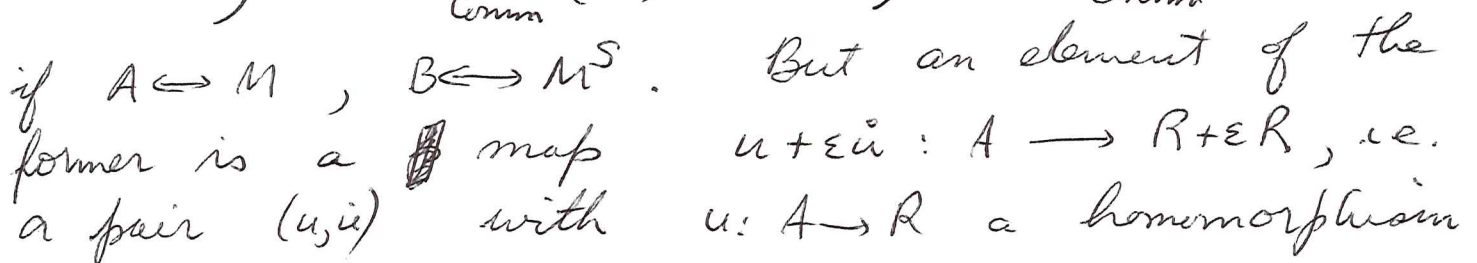 Comm
if A ⟷ M , B ⟷ M^S . But an element of the
former is a map u + εu̇ : A ⟶ R + εR , i.e.
a pair (u, u̇) with u : A → R a homomorphism